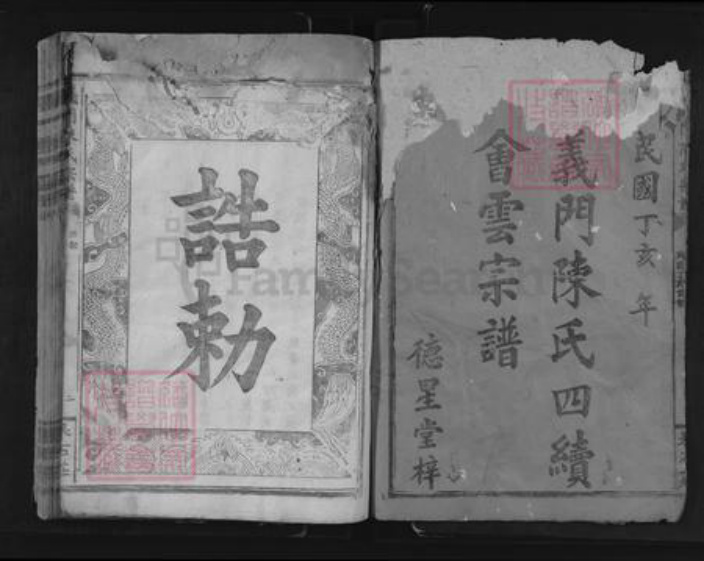 民國丁亥年
義門陳氏四續
會雲宗譜
德星堂梓
誥勅
FamilySearch